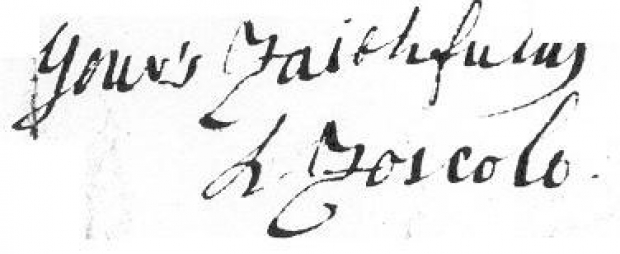 Your's Faithfully
Foscolo